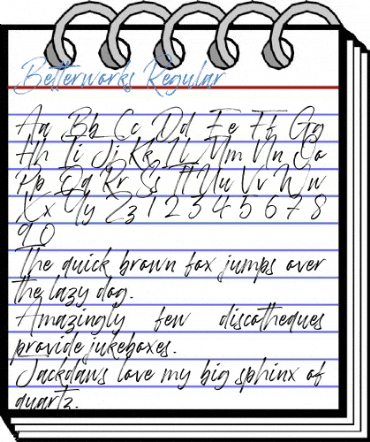 Betterworks Regular
Aa Bb Cc Dd Ee Ff Gg
Hh Ii Jj Kk Ll Mm Nn Oo
Pp Qq Rr Ss Tt Uu Vv Ww
Xx Yy Zz 1 2 3 4 5 6 7 8
9 0
The quick brown fox jumps over
the lazy dog.
Amazingly few discotheques
provide jukeboxes.
Jackdaws love my big sphinx of
quartz.